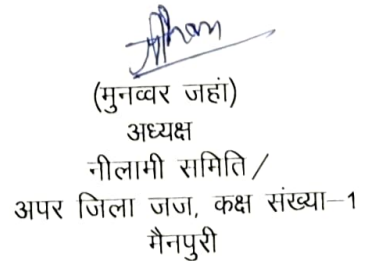 (मुनव्वर जहां)
अध्यक्ष
नीलामी समिति/
अपर जिला जज, कक्ष संख्या-1
मैनपुरी